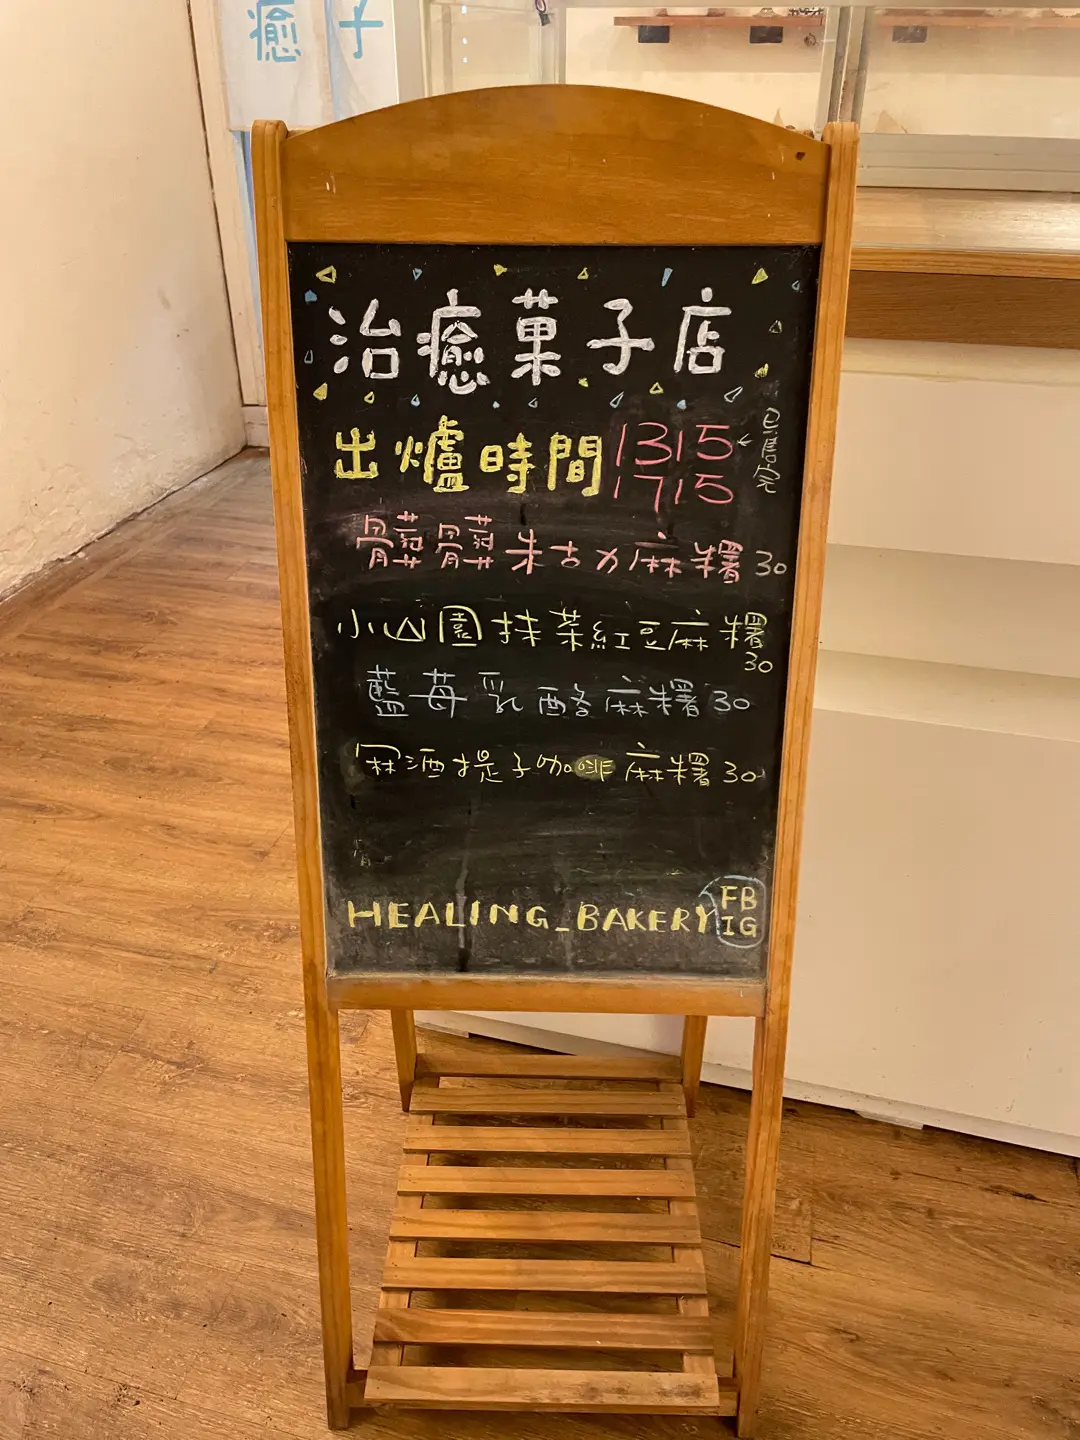 癒子
治癒菓子店
出爐時間 1315 ← 已售完
1715
髒髒朱古力麻糬 30
小山園抹茶紅豆麻糬 30
藍莓乳酪麻糬 30
冧酒提子咖啡麻糬 30
HEALING_BAKERY FB IG